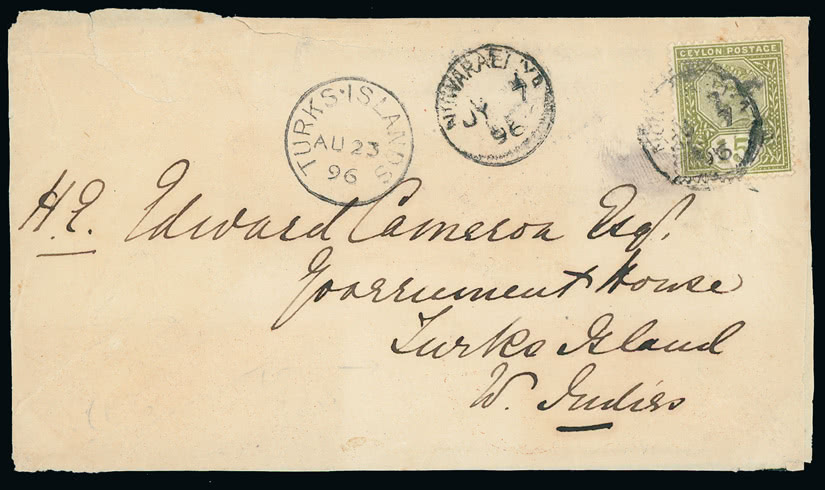 CEYLON POSTAGE
TURKS·ISLANDS
AU 23
96
JY 7
96
5
96
H.E. Edward Cameron Esqr.
Government House
Turks Island
W. Indies